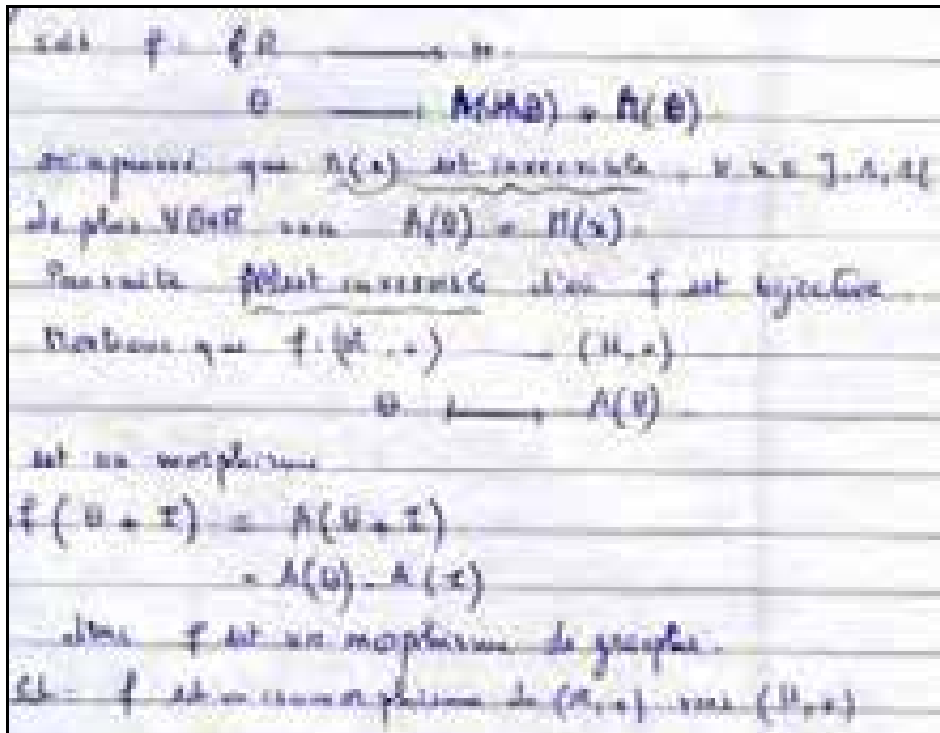 soit f : R → H
θ → A(θ)
que M(x) est inversible, ∀ x ∈ ]-1, 1[
de plus ∀ θ ∈ R A(θ) = M(x)
Par suite est inversible d'où f est bijective
Montrons que f : (R, +) → (H, ×)
θ ↦ A(θ)
est un morphisme
f(θ + τ) = A(θ + τ)
= A(θ) . A(τ)
donc f est un morphisme de groupe.
f est un isomorphisme de (R, +) vers (H, ×)